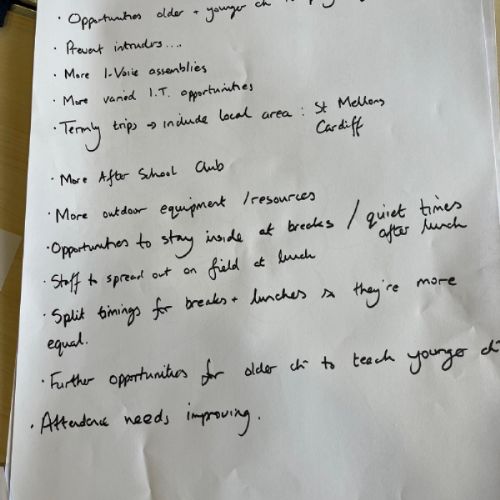 • Opportunities older + younger ch to
• Prevent intruders....
• More I-Voice assemblies
• More varied I.T. opportunities
• Termly trips → include local area : St Mellons
Cardiff
• More After School Club
• More outdoor equipment / resources
• Opportunities to stay inside at breaks / quiet times
after lunch
• Staff to spread out on field at lunch
• Split timings for breaks + lunches so they're more
equal.
• Further opportunities for older ch to teach younger ch
• Attendance needs improving.